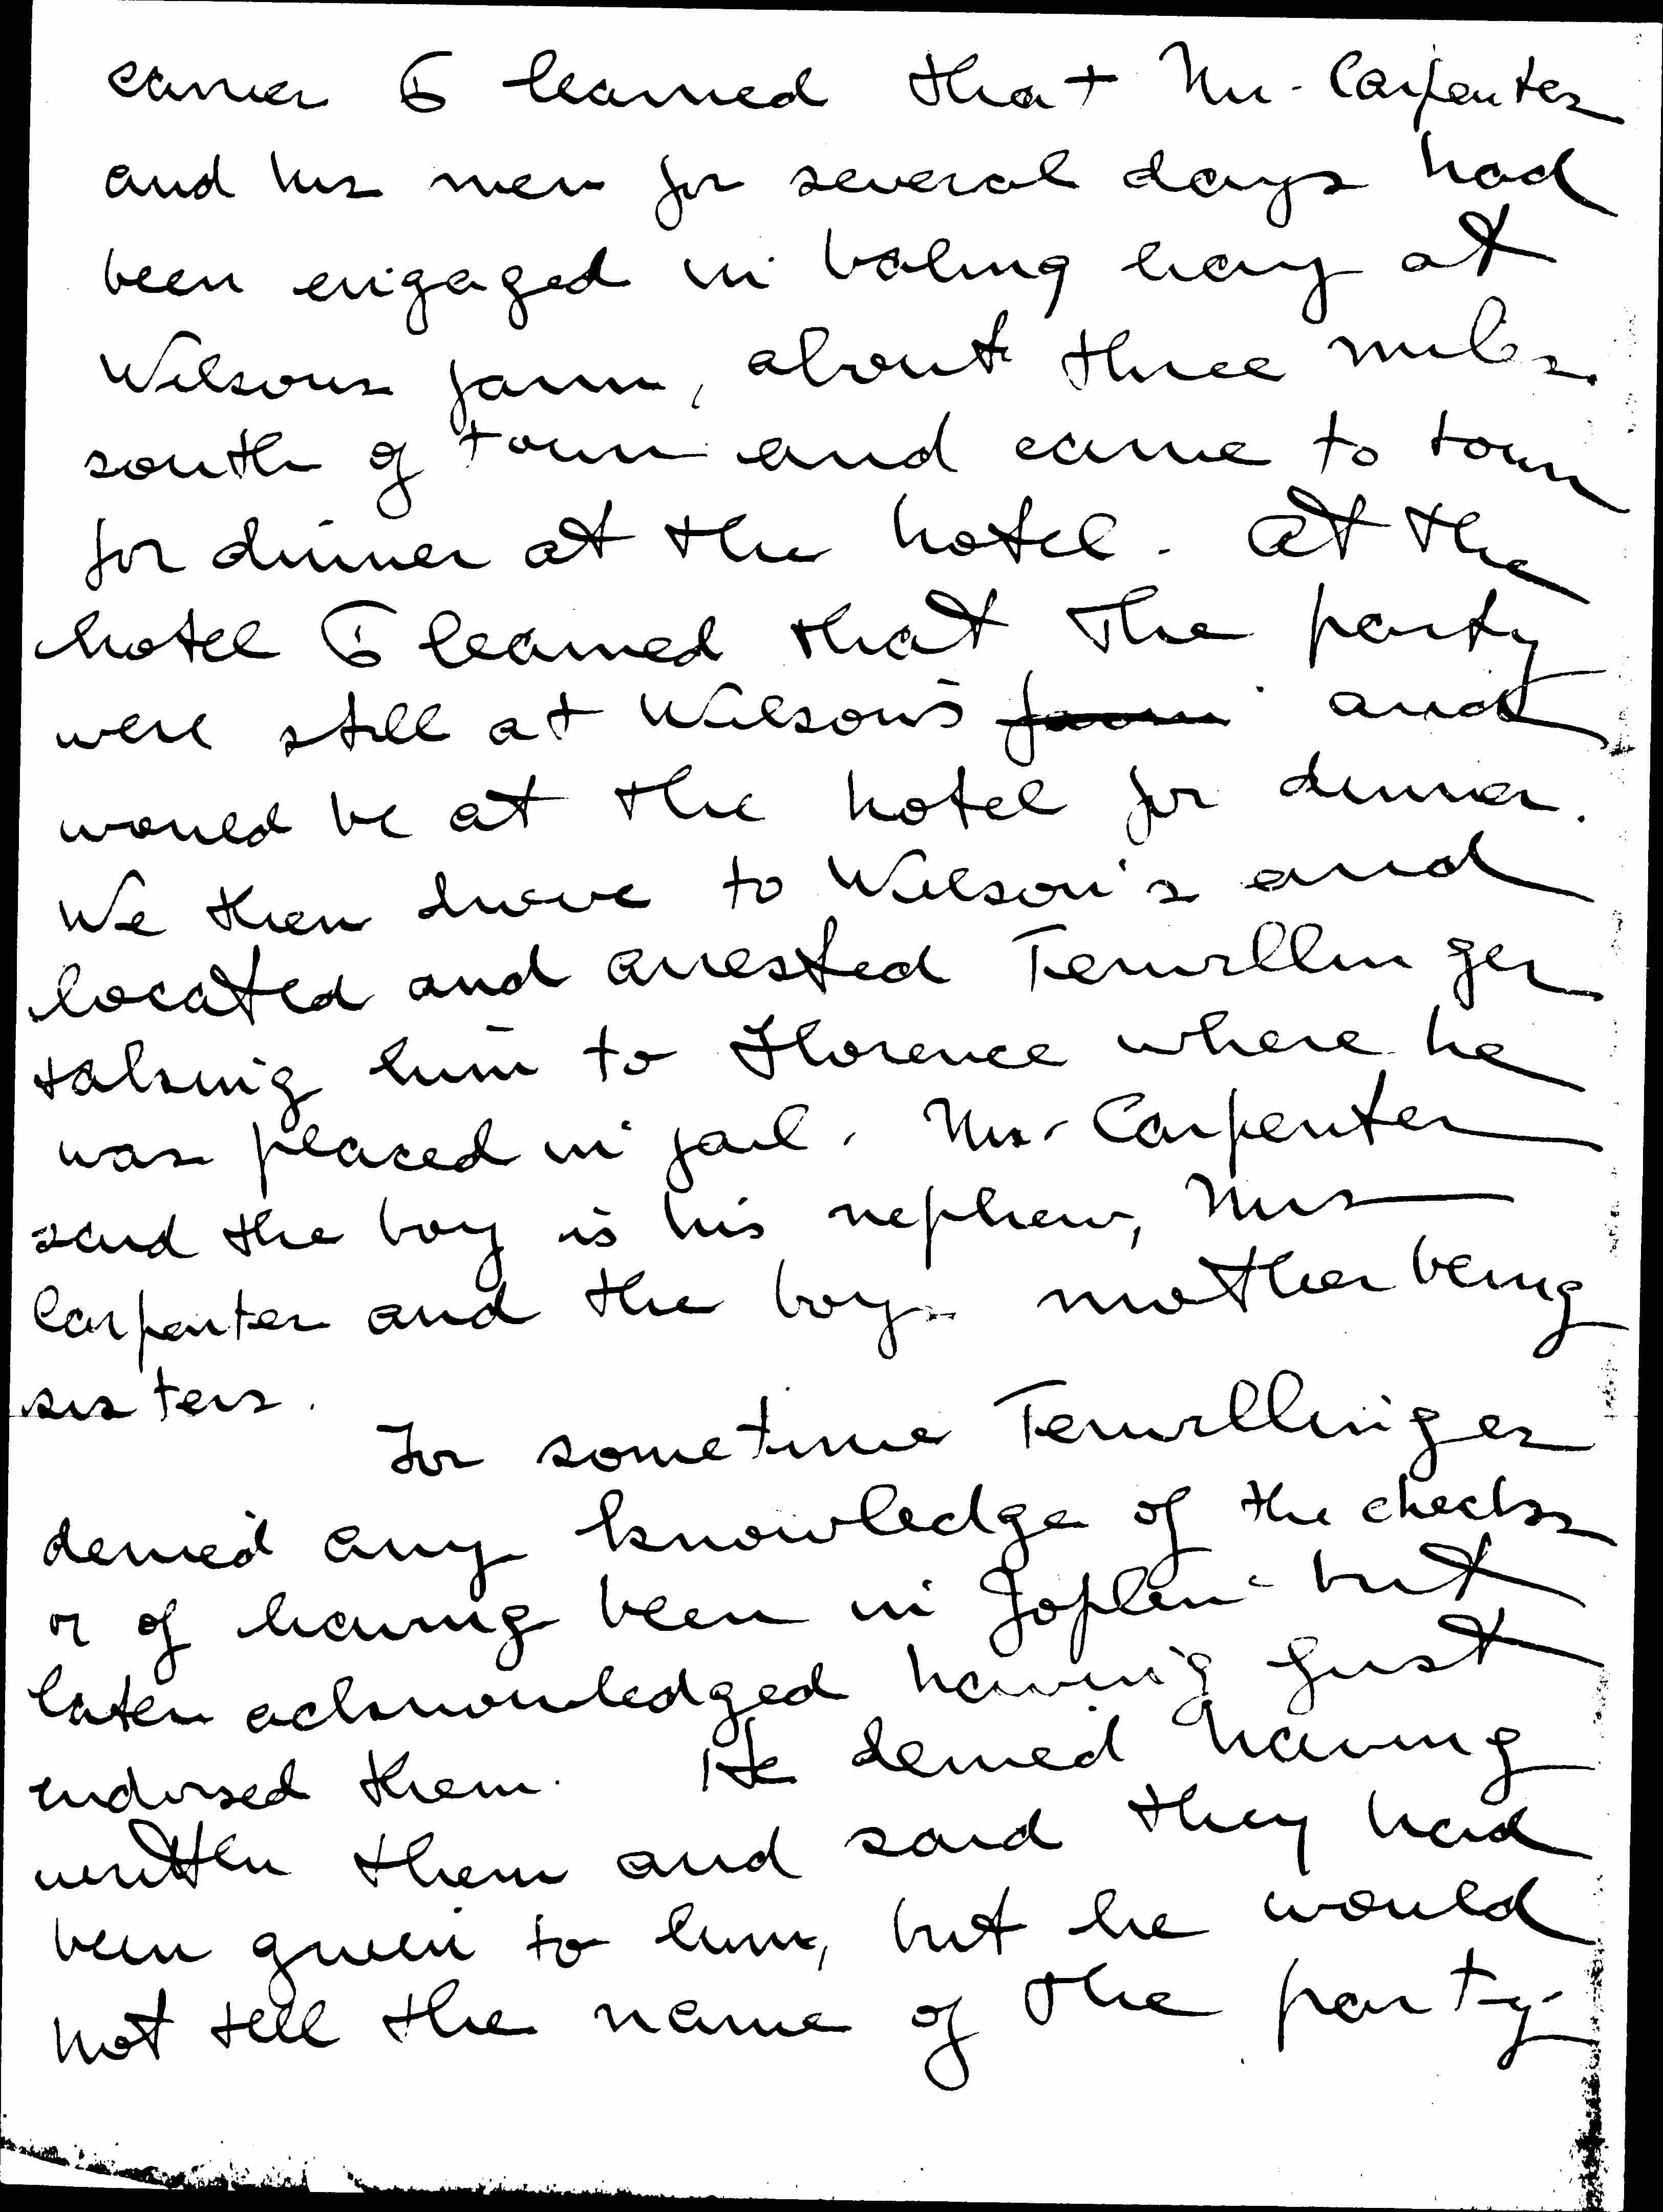 carrier I learned that Mr. Carpenter
and his men for several days had
been engaged in baling hay at
Wilsons farm, about three miles
south of town and came to town
for dinner at the hotel. At the
hotel I learned that the party
were still at Wilson's farm and
would be at the hotel for dinner.
We then drove to Wilson's and
located and arrested Terwillinger
taking him to Florence where he
was placed in jail. Mr. Carpenter
said the boy is his nephew, Mrs
Carpenter and the boys mother being
sisters.
For sometime Terwillinger
denied any knowledge of the checks
or of having been in Joplin but
later acknowledged having just
endorsed them. He denied having
written them and said they had
been given to him, but he would
not tell the name of the party.